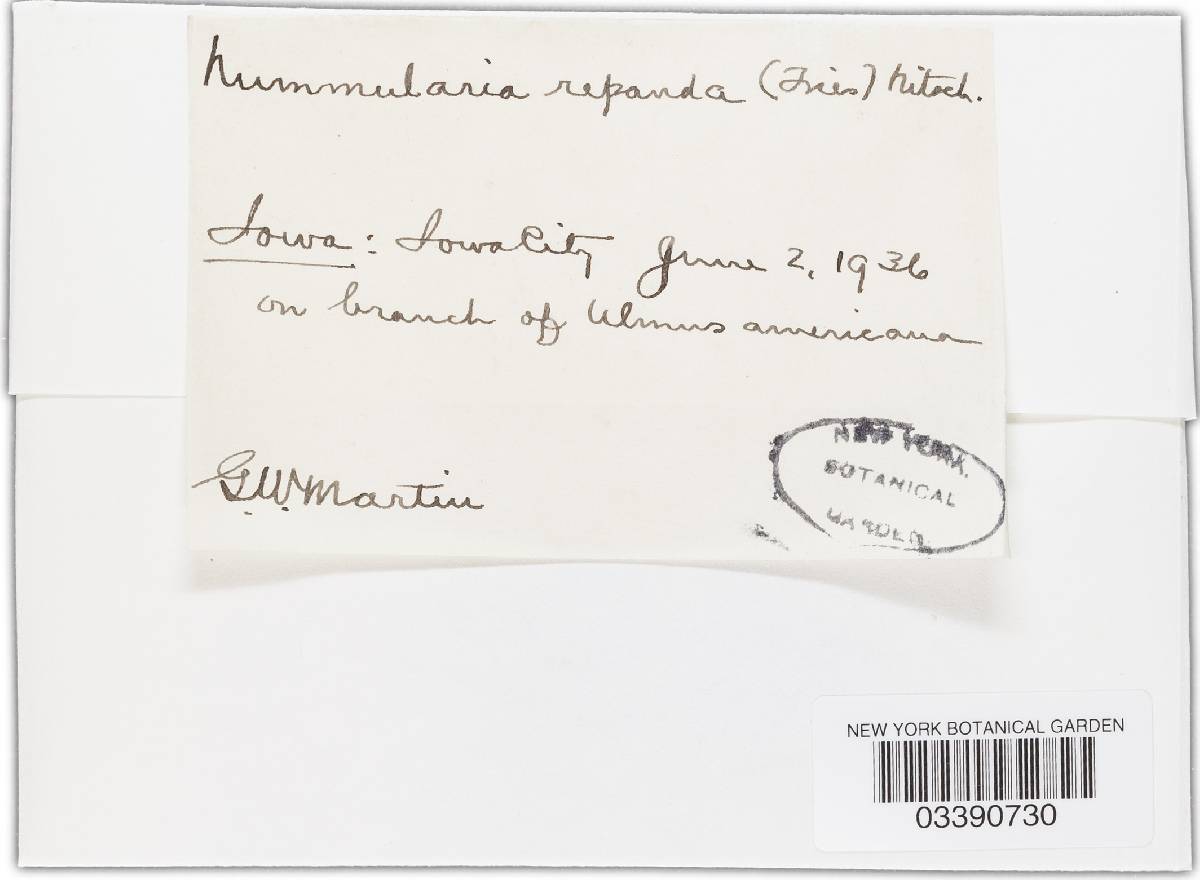 Nummularia repanda (Fries) Nitsch.
Iowa: Iowa City June 2, 1936
on branch of Ulmus americana
G.W. Martin
NEW YORK
BOTANICAL
GARDEN
NEW YORK BOTANICAL GARDEN
03390730